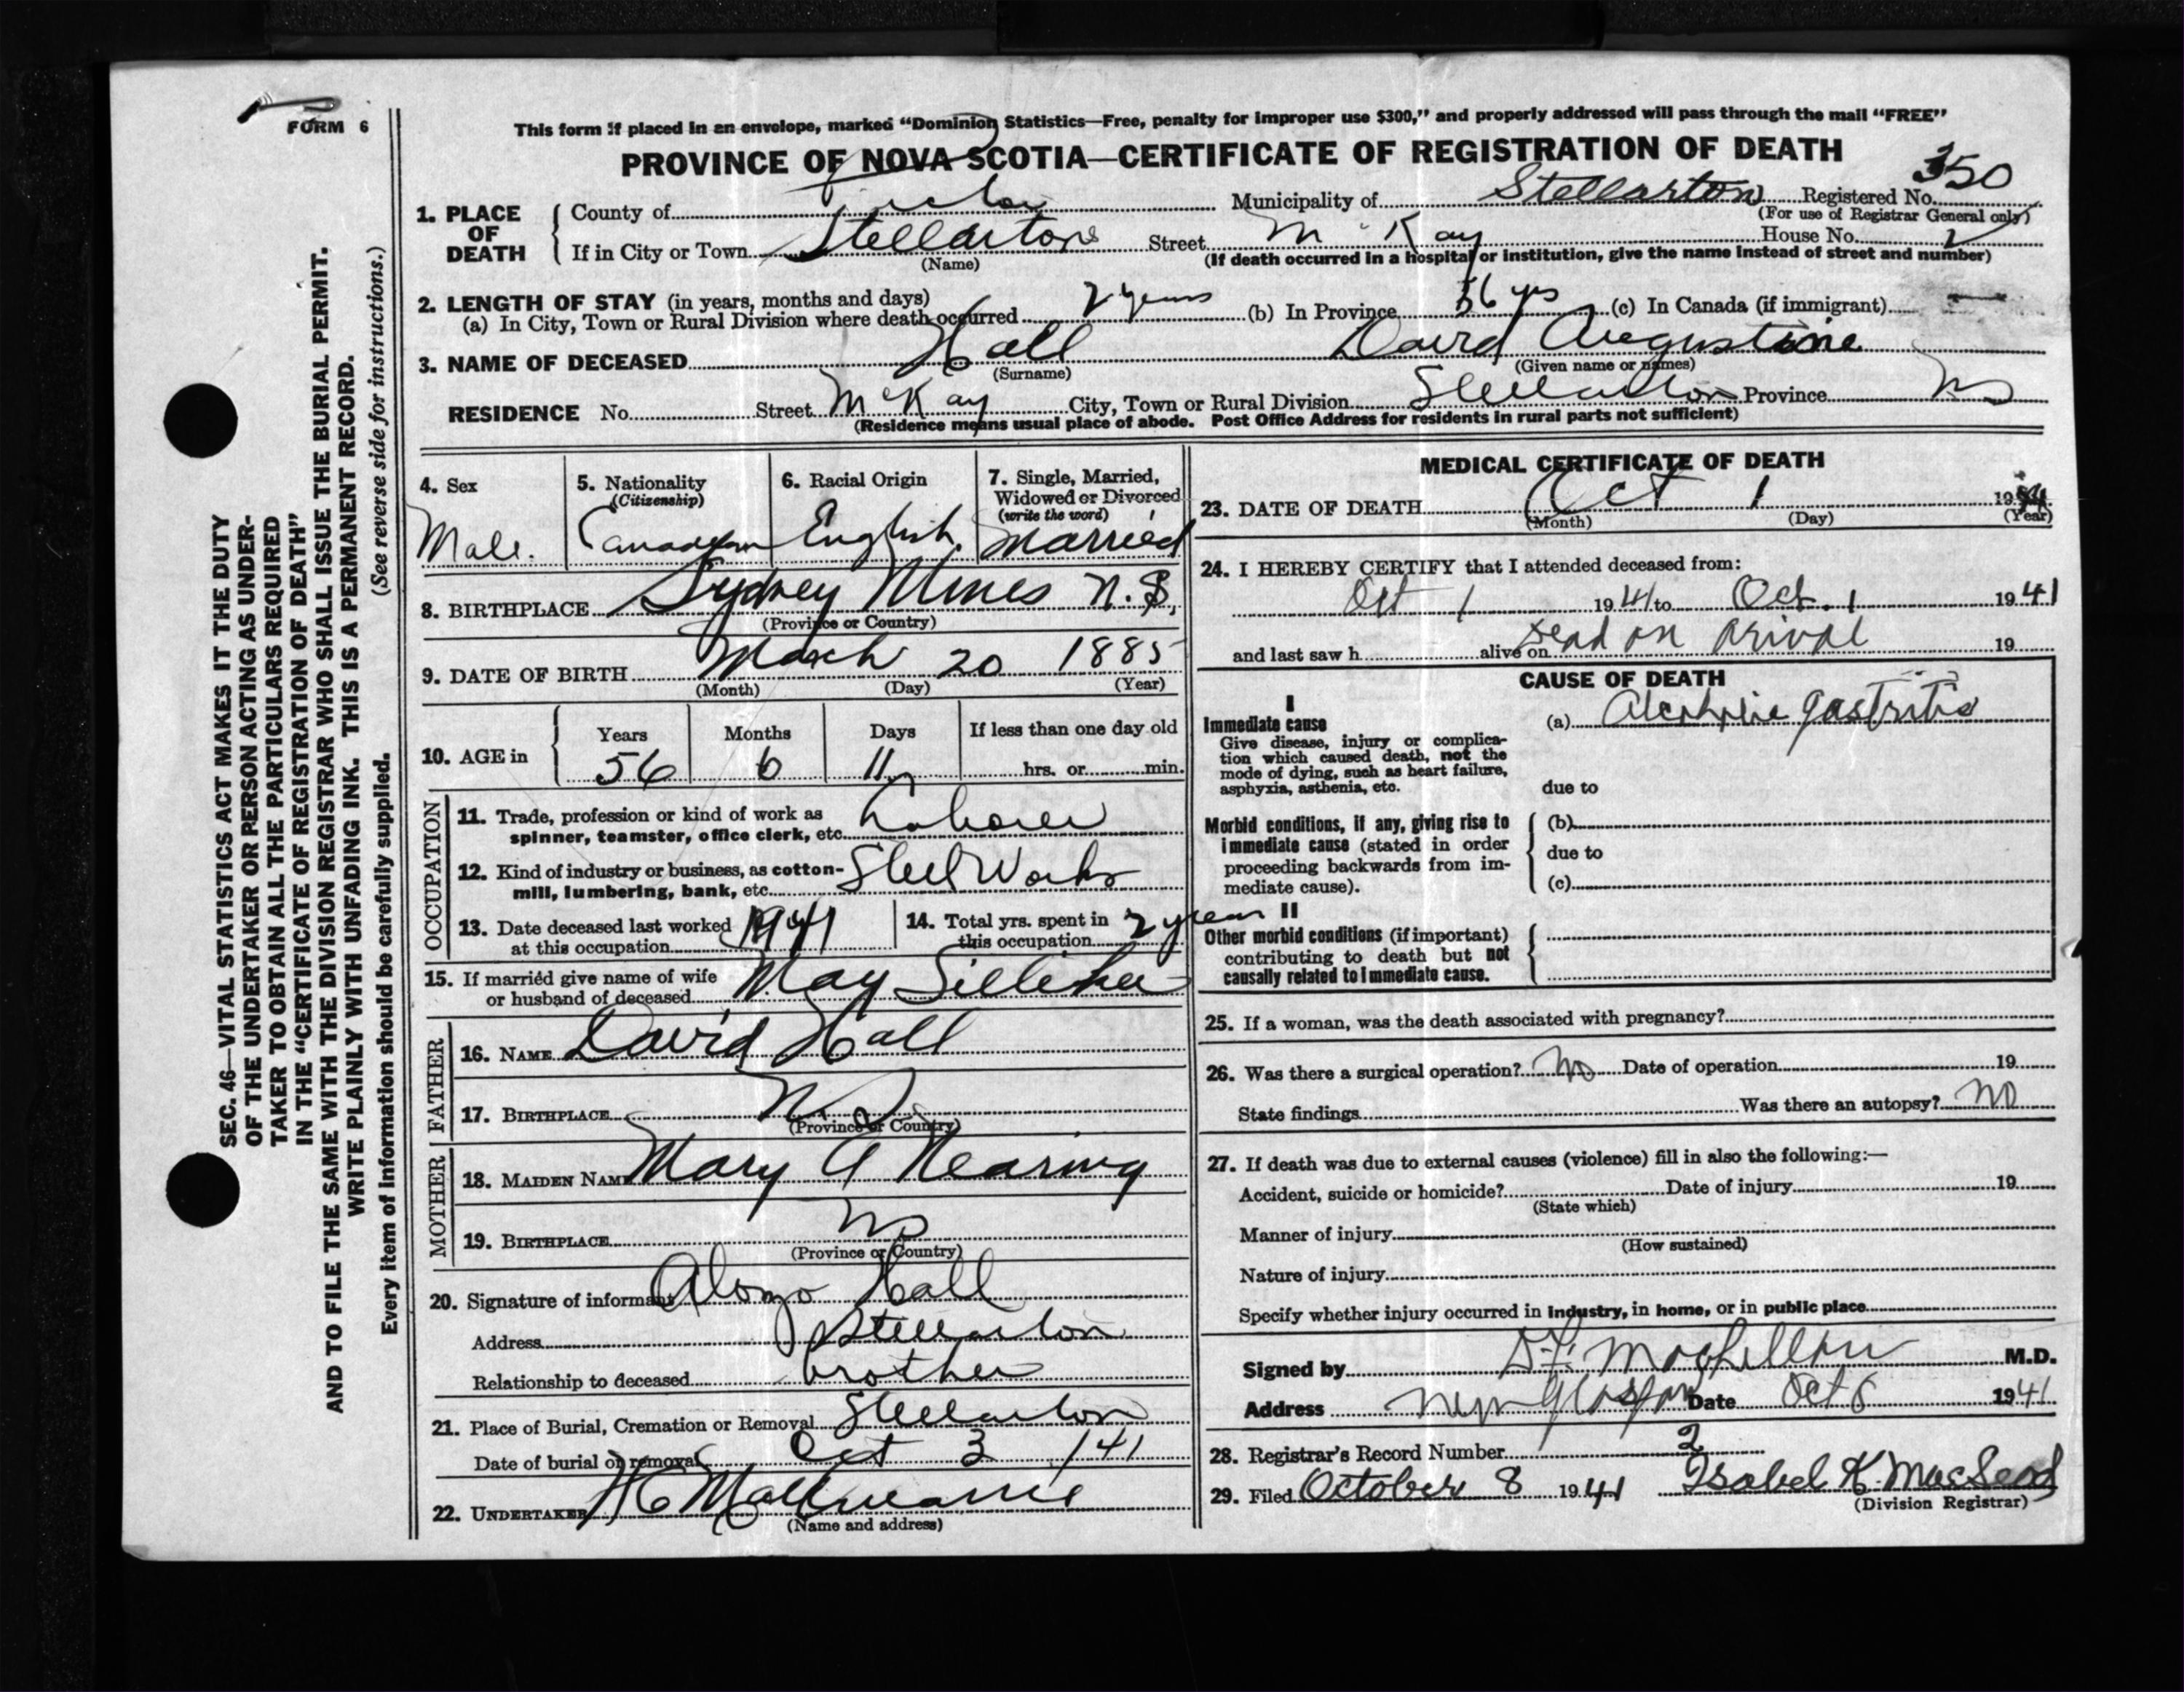 FORM 6
This form if placed in an envelope, marked “Dominion Statistics—Free, penalty for improper use $300,” and properly addressed will pass through the mail “FREE”
PROVINCE OF NOVA SCOTIA—CERTIFICATE OF REGISTRATION OF DEATH
350
1. PLACE OF DEATH
County of Pictou Municipality of Stellarton Registered No.
(For use of Registrar General only)
If in City or Town Stellarton Street McKay House No.
(Name) (If death occurred in a hospital or institution, give the name instead of street and number)
2. LENGTH OF STAY (in years, months and days)
(a) In City, Town or Rural Division where death occurred 2 years (b) In Province 56 yrs (c) In Canada (if immigrant) —
3. NAME OF DECEASED Hall David Augustine
(Surname) (Given name or names)
RESIDENCE No. Street McKay City, Town or Rural Division Stellarton Province NS
(Residence means usual place of abode. Post Office Address for residents in rural parts not sufficient)
4. Sex
Male.
5. Nationality
(Citizenship)
Canadian
6. Racial Origin
English.
7. Single, Married,
Widowed or Divorced
(write the word)
Married
8. BIRTHPLACE Sydney Mines N.S.
(Province or Country)
9. DATE OF BIRTH March 20 1885
(Month) (Day) (Year)
10. AGE in
Years Months Days If less than one day old
56 6 11 hrs. or min.
OCCUPATION
11. Trade, profession or kind of work as
spinner, teamster, office clerk, etc. Laborer
12. Kind of industry or business, as cotton-
mill, lumbering, bank, etc. Steel Works
13. Date deceased last worked
at this occupation 1941
14. Total yrs. spent in
this occupation 2 years
15. If married give name of wife
or husband of deceased May
FATHER
16. NAME David Hall
17. BIRTHPLACE N.S.
(Province or Country)
MOTHER
18. MAIDEN NAME Mary A Nearing
19. BIRTHPLACE NS
(Province or Country)
20. Signature of informant Alonzo Hall
Address Stellarton
Relationship to deceased brother
21. Place of Burial, Cremation or Removal Stellarton
Date of burial or removal Oct 3 /41
22. UNDERTAKER
(Name and address)
MEDICAL CERTIFICATE OF DEATH
23. DATE OF DEATH Oct 1 1941
(Month) (Day) (Year)
24. I HEREBY CERTIFY that I attended deceased from:
Oct 1 1941 to Oct. 1 1941
and last saw h alive on Dead on arival 19
CAUSE OF DEATH
I
Immediate cause
Give disease, injury or complica-
tion which caused death, not the
mode of dying, such as heart failure,
asphyxia, asthenia, etc.
(a) Alcoholic gastritis
due to
Morbid conditions, if any, giving rise to
immediate cause (stated in order
proceeding backwards from im-
mediate cause).
(b)
due to
(c)
II
Other morbid conditions (if important)
contributing to death but not
causally related to immediate cause.
25. If a woman, was the death associated with pregnancy?
26. Was there a surgical operation? No Date of operation 19
State findings Was there an autopsy? NO
27. If death was due to external causes (violence) fill in also the following:—
Accident, suicide or homicide? Date of injury 19
(State which)
Manner of injury
(How sustained)
Nature of injury
Specify whether injury occurred in industry, in home, or in public place
Signed by D.F. MacLellan M.D.
Address New Glasgow Date Oct 6 1941
28. Registrar's Record Number 2
29. Filed October 8 1941 Isabel K. MacLeod
(Division Registrar)
SEC. 46—VITAL STATISTICS ACT MAKES IT THE DUTY
OF THE UNDERTAKER OR PERSON ACTING AS UNDER-
TAKER TO OBTAIN ALL THE PARTICULARS REQUIRED
IN THE “CERTIFICATE OF REGISTRATION OF DEATH”
AND TO FILE THE SAME WITH THE DIVISION REGISTRAR WHO SHALL ISSUE THE BURIAL PERMIT.
WRITE PLAINLY WITH UNFADING INK. THIS IS A PERMANENT RECORD.
Every item of information should be carefully supplied. (See reverse side for instructions.)